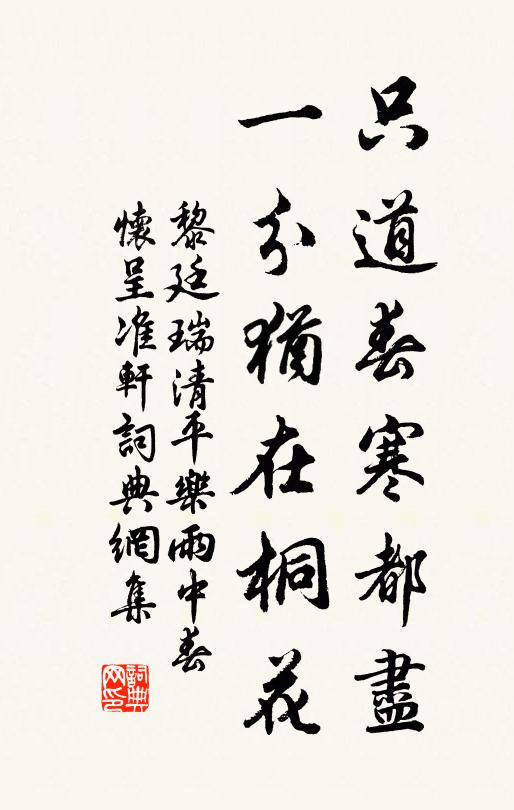 只道春寒都盡
一分猶在桐花
黎廷瑞清平樂雨中春
懷呈准軒詞典網集
詞典網印